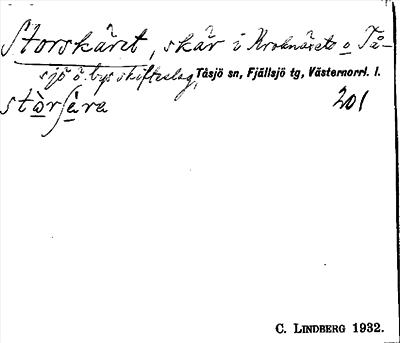 Storskäret, skär i Kroknäsets o Tå-
sjö o. bys skifteslag, Tåsjö sn, Fjällsjö tg, Västernorrl. l.
201
C. LINDBERG 1932.